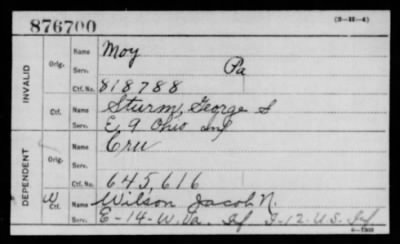 876700 (3—H—4)
INVALID Orig. Name Moy
Serv. Pa
Ctf. No. 818788
Ctf. Name Sturm, George S
Serv. E. 9 Ohio Inf
DEPENDENT Orig. Name Cru
Serv.
Ctf. No. 645,616
W Ctf. Name Wilson Jacob N.
Serv. E-14-W. Va. Inf I-12. U.S. Inf